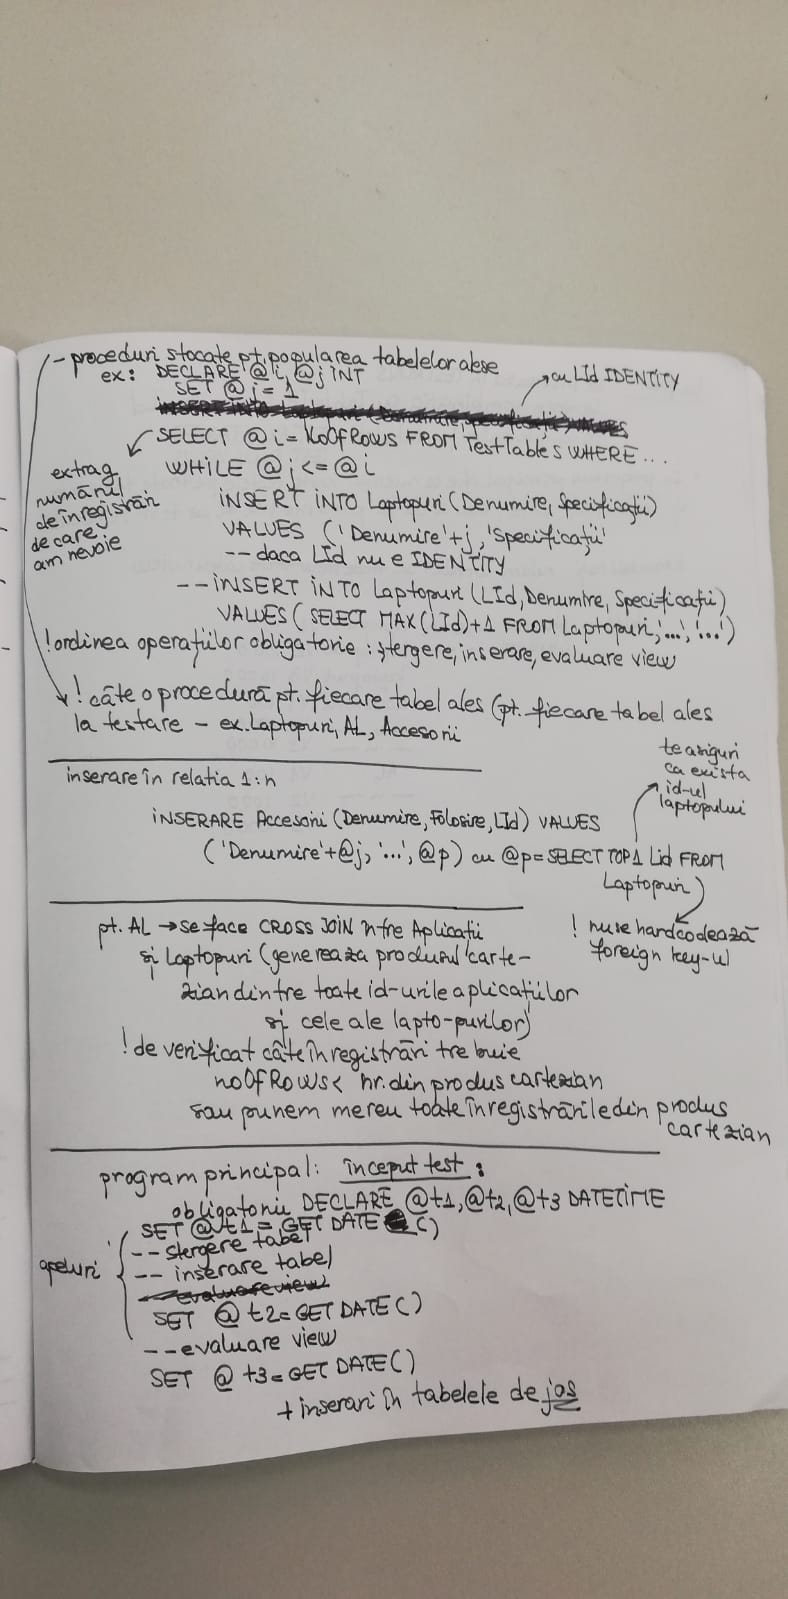 - proceduri stocate pt. popularea tabelelor alese
ex: DECLARE @i, @j INT
SET @j = 1
cu LId IDENTITY
SELECT @i = NoOfRows FROM TestTables WHERE...
extrag
numărul
de înregistrări
de care
am nevoie
WHILE @j <= @i
INSERT INTO Laptopuri (Denumire, Specificații)
VALUES ('Denumire'+j, 'Specificații'
-- daca LId nu e IDENTITY
-- INSERT INTO Laptopuri (LId, Denumire, Specificații)
VALUES (SELECT MAX(LId)+1 FROM Laptopuri, '...', '...')
! ordinea operațiilor obligatorie : ștergere, inserare, evaluare view
! câte o procedură pt. fiecare tabel ales (pt. fiecare tabel ales
la testare - ex. Laptopuri, AL, Accesorii
inserare în relatia 1:n
te asiguri
ca exista
id-ul
laptopului
INSERARE Accesorii (Denumire, Folosire, LId) VALUES
('Denumire'+@j, '...', @p) cu @p = SELECT TOP 1 Lid FROM
Laptopuri)
! nu se hardcodează
foreign key-ul
pt. AL → se face CROSS JOIN între Aplicații
și Laptopuri (genereaza produsul carte-
zian dintre toate id-urile aplicațiilor
și cele ale lapto-purilor)
! de verificat câte înregistrări trebuie
noOfRows < nr. din produs cartezian
sau punem mereu toate înregistrările din produs
cartezian
program principal: început test :
obligatoriu DECLARE @t1, @t2, @t3 DATETIME
SET @t1 = GETDATE ()
apeluri
-- stergere tabel
-- inserare tabel
evaluare view
SET @t2 = GETDATE()
-- evaluare view
SET @t3 = GETDATE()
+ inserari în tabelele de jos